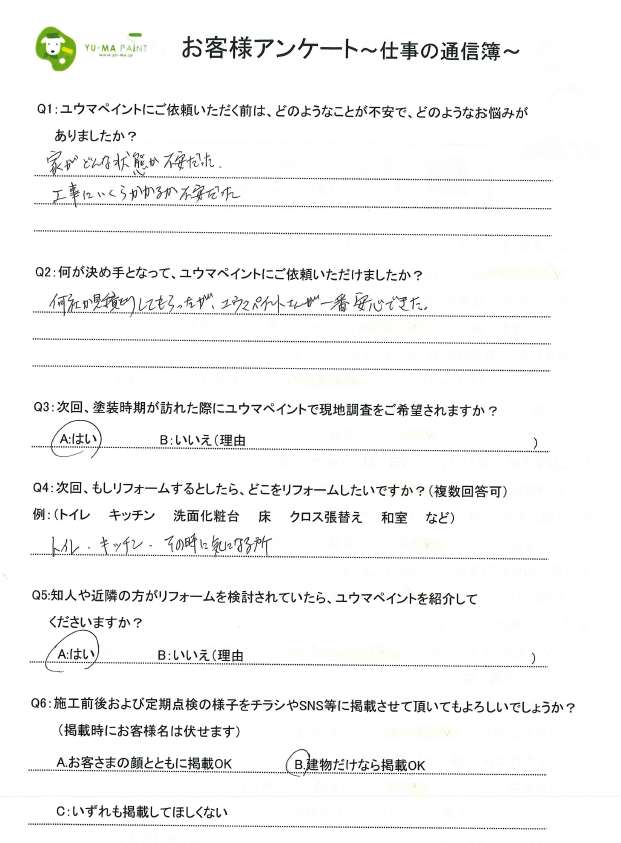 YU-MA PAINT
www.yu-ma.co
お客様アンケート～仕事の通信簿～
Q1：ユウマペイントにご依頼いただく前は、どのようなことが不安で、どのようなお悩みが
ありましたか？
家がどんな状態か不安だった.
工事にいくらかかるか不安だった
Q2：何が決め手となって、ユウマペイントにご依頼いただけましたか？
何社か見積りしてもらったが、ユウマペイントさんが一番安心できた。
Q3：次回、塗装時期が訪れた際にユウマペイントで現地調査をご希望されますか？
A:はい B：いいえ（理由 ）
Q4：次回、もしリフォームするとしたら、どこをリフォームしたいですか？（複数回答可）
例：（トイレ キッチン 洗面化粧台 床 クロス張替え 和室 など）
トイレ・キッチン・その時に気になる所
Q5:知人や近隣の方がリフォームを検討されていたら、ユウマペイントを紹介して
くださいますか？
A:はい B：いいえ（理由 ）
Q6：施工前後および定期点検の様子をチラシやSNS等に掲載させて頂いてもよろしいでしょうか？
（掲載時にお客様名は伏せます）
A.お客さまの顔とともに掲載OK B.建物だけなら掲載OK
C：いずれも掲載してほしくない